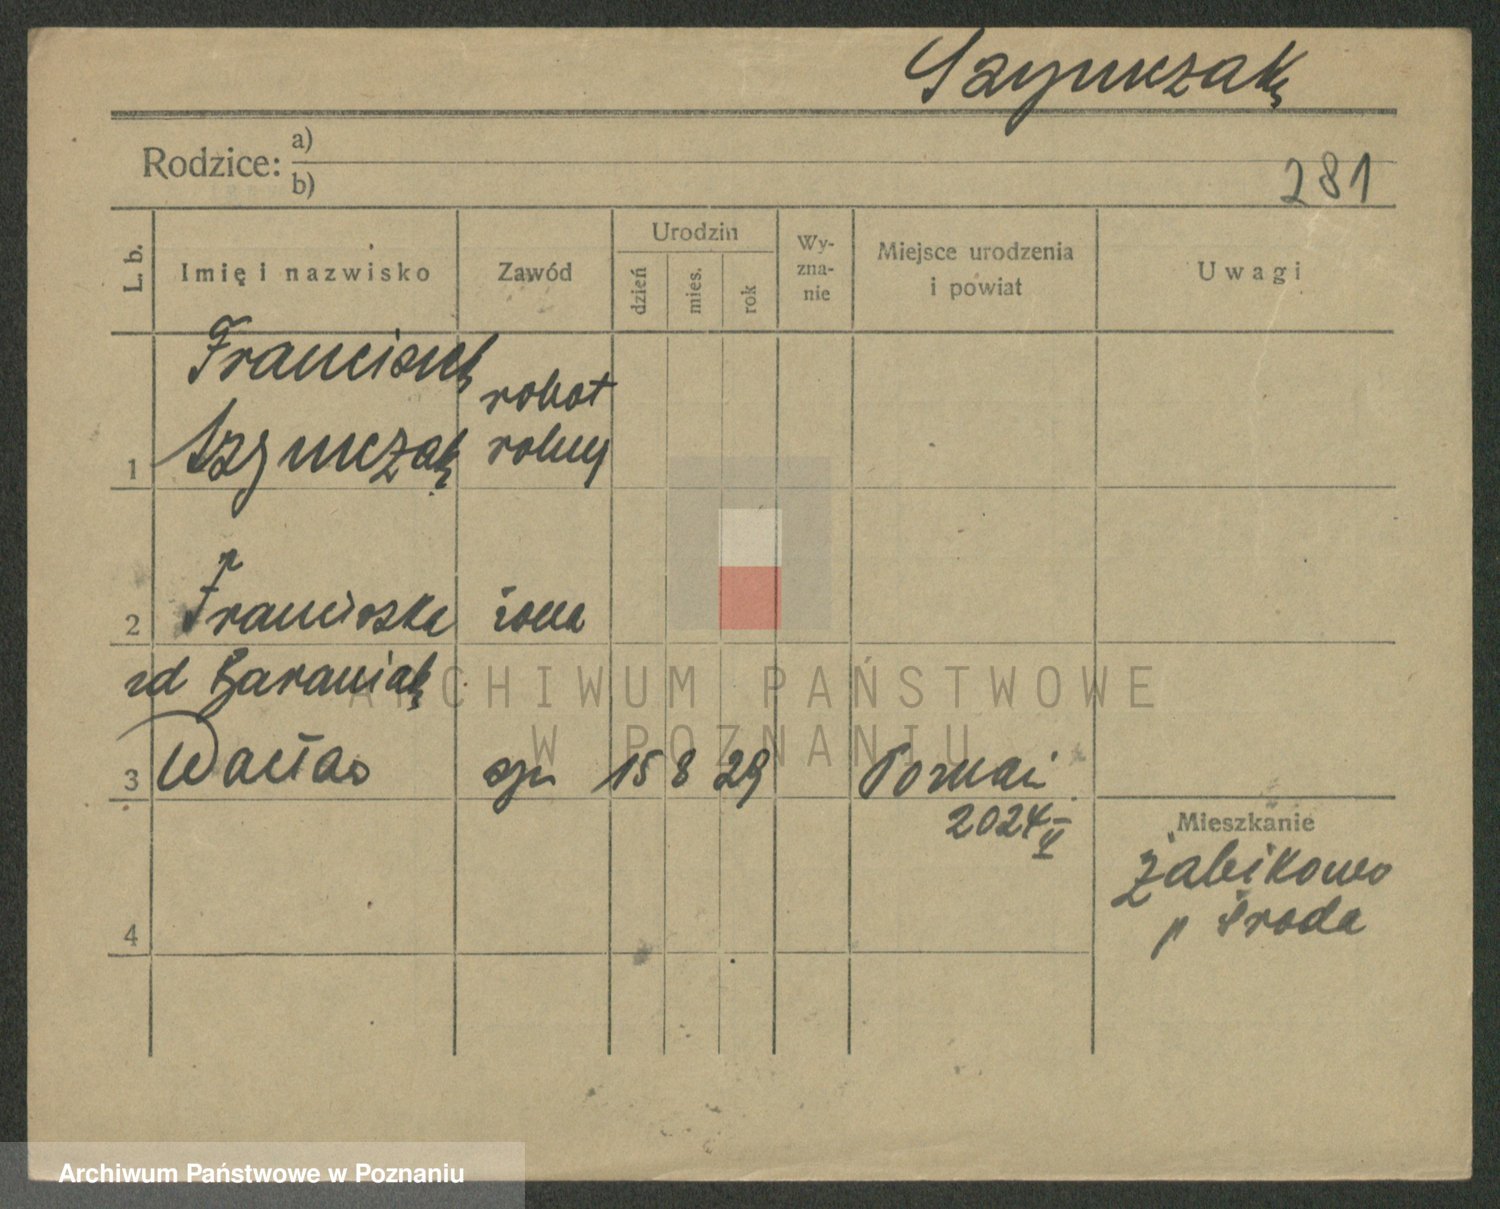 Szymczak
Rodzice: a)
b)
281
L. b. Imię i nazwisko Zawód Urodzin dzień mies. rok Wy-zna-nie Miejsce urodzenia i powiat Uwagi
Franciszek robot
1 Szymczak rolny
2 Franciszka żona
zd Baraniak
3 Wacław syn 15 8 29 Poznań
2024 II
Mieszkanie
Żabikowo
p Środa
4
ARCHIWUM PAŃSTWOWE
W POZNANIU
Archiwum Państwowe w Poznaniu